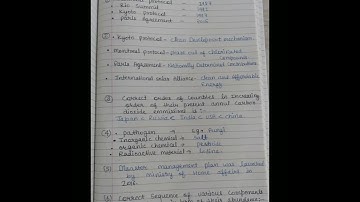 protocol - 1987
• Rio Summit - 1992
• Kyoto protocol - 1997
• Paris Agreement - 2015
② • Kyoto protocol - Clean Development mechanism
• Montreal protocol - phase out of chlorinated
compounds
• Paris Agreement - Nationally Determined Contributions
• International solar Alliance - clean and Affordable
Energy
③ Correct order of countries in increasing
order of their present annual carbon
dioxide emissions is :-
Japan < Russia < India < USA < china
④ • pathogen → Fungi
• Inorganic chemical → Salt
• organic chemical → pesticide
• Radioactive material → Iodine
⑤ Disaster management plan was launched
by ministry of Home affairs in
2016.
⑥ Correct Sequence of various components
of their abundance:-